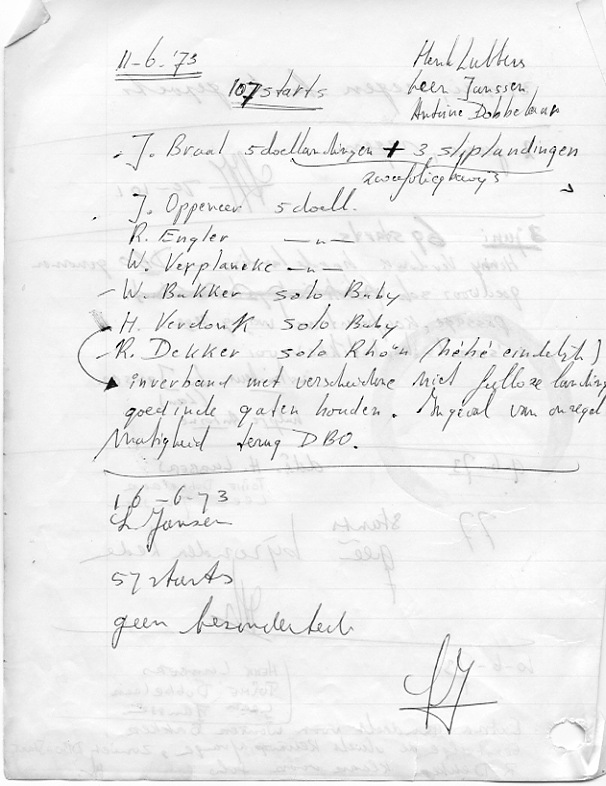 11-6-'73
107 starts
Henk Lubbers
Leen Janssen
Antoine Dobbelaar
- J. Braal 5 doellandingen + 3 sliplandingen
zweefvliegbewijs
J. Oppeneer 5 doell.
R. Engler —„—
W. Verplancke —„—
- W. Bakker solo Baby
- H. Verdonk solo Baby
- R. Dekker solo Rhön (héhé eindelijk)
inverband met verscheidene niet feilloze landing
goed in de gaten houden. Ingeval van onregel
matigheid terug DBO.
16-6-73
L Jansen
57 starts
geen
LJ